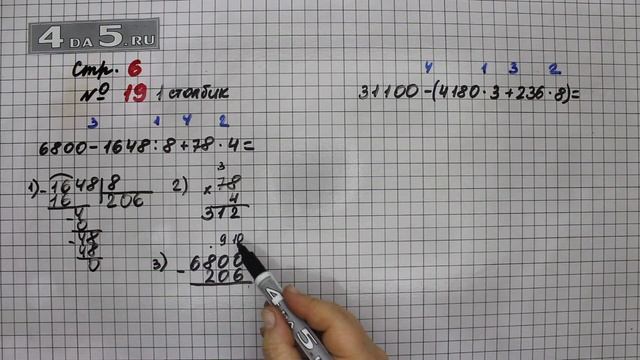 4DA5.RU
Стр. 6
№ 19 1 столбик
3 1 4 2
6800-1648:8+78·4=
4 1 3 2
31100-(4180·3+236·8)=
1) 1648 8
16 206
-4
0
-48
48
0
2) 3
×78
4
312
3) . 9 10
-6800
206
4DA5